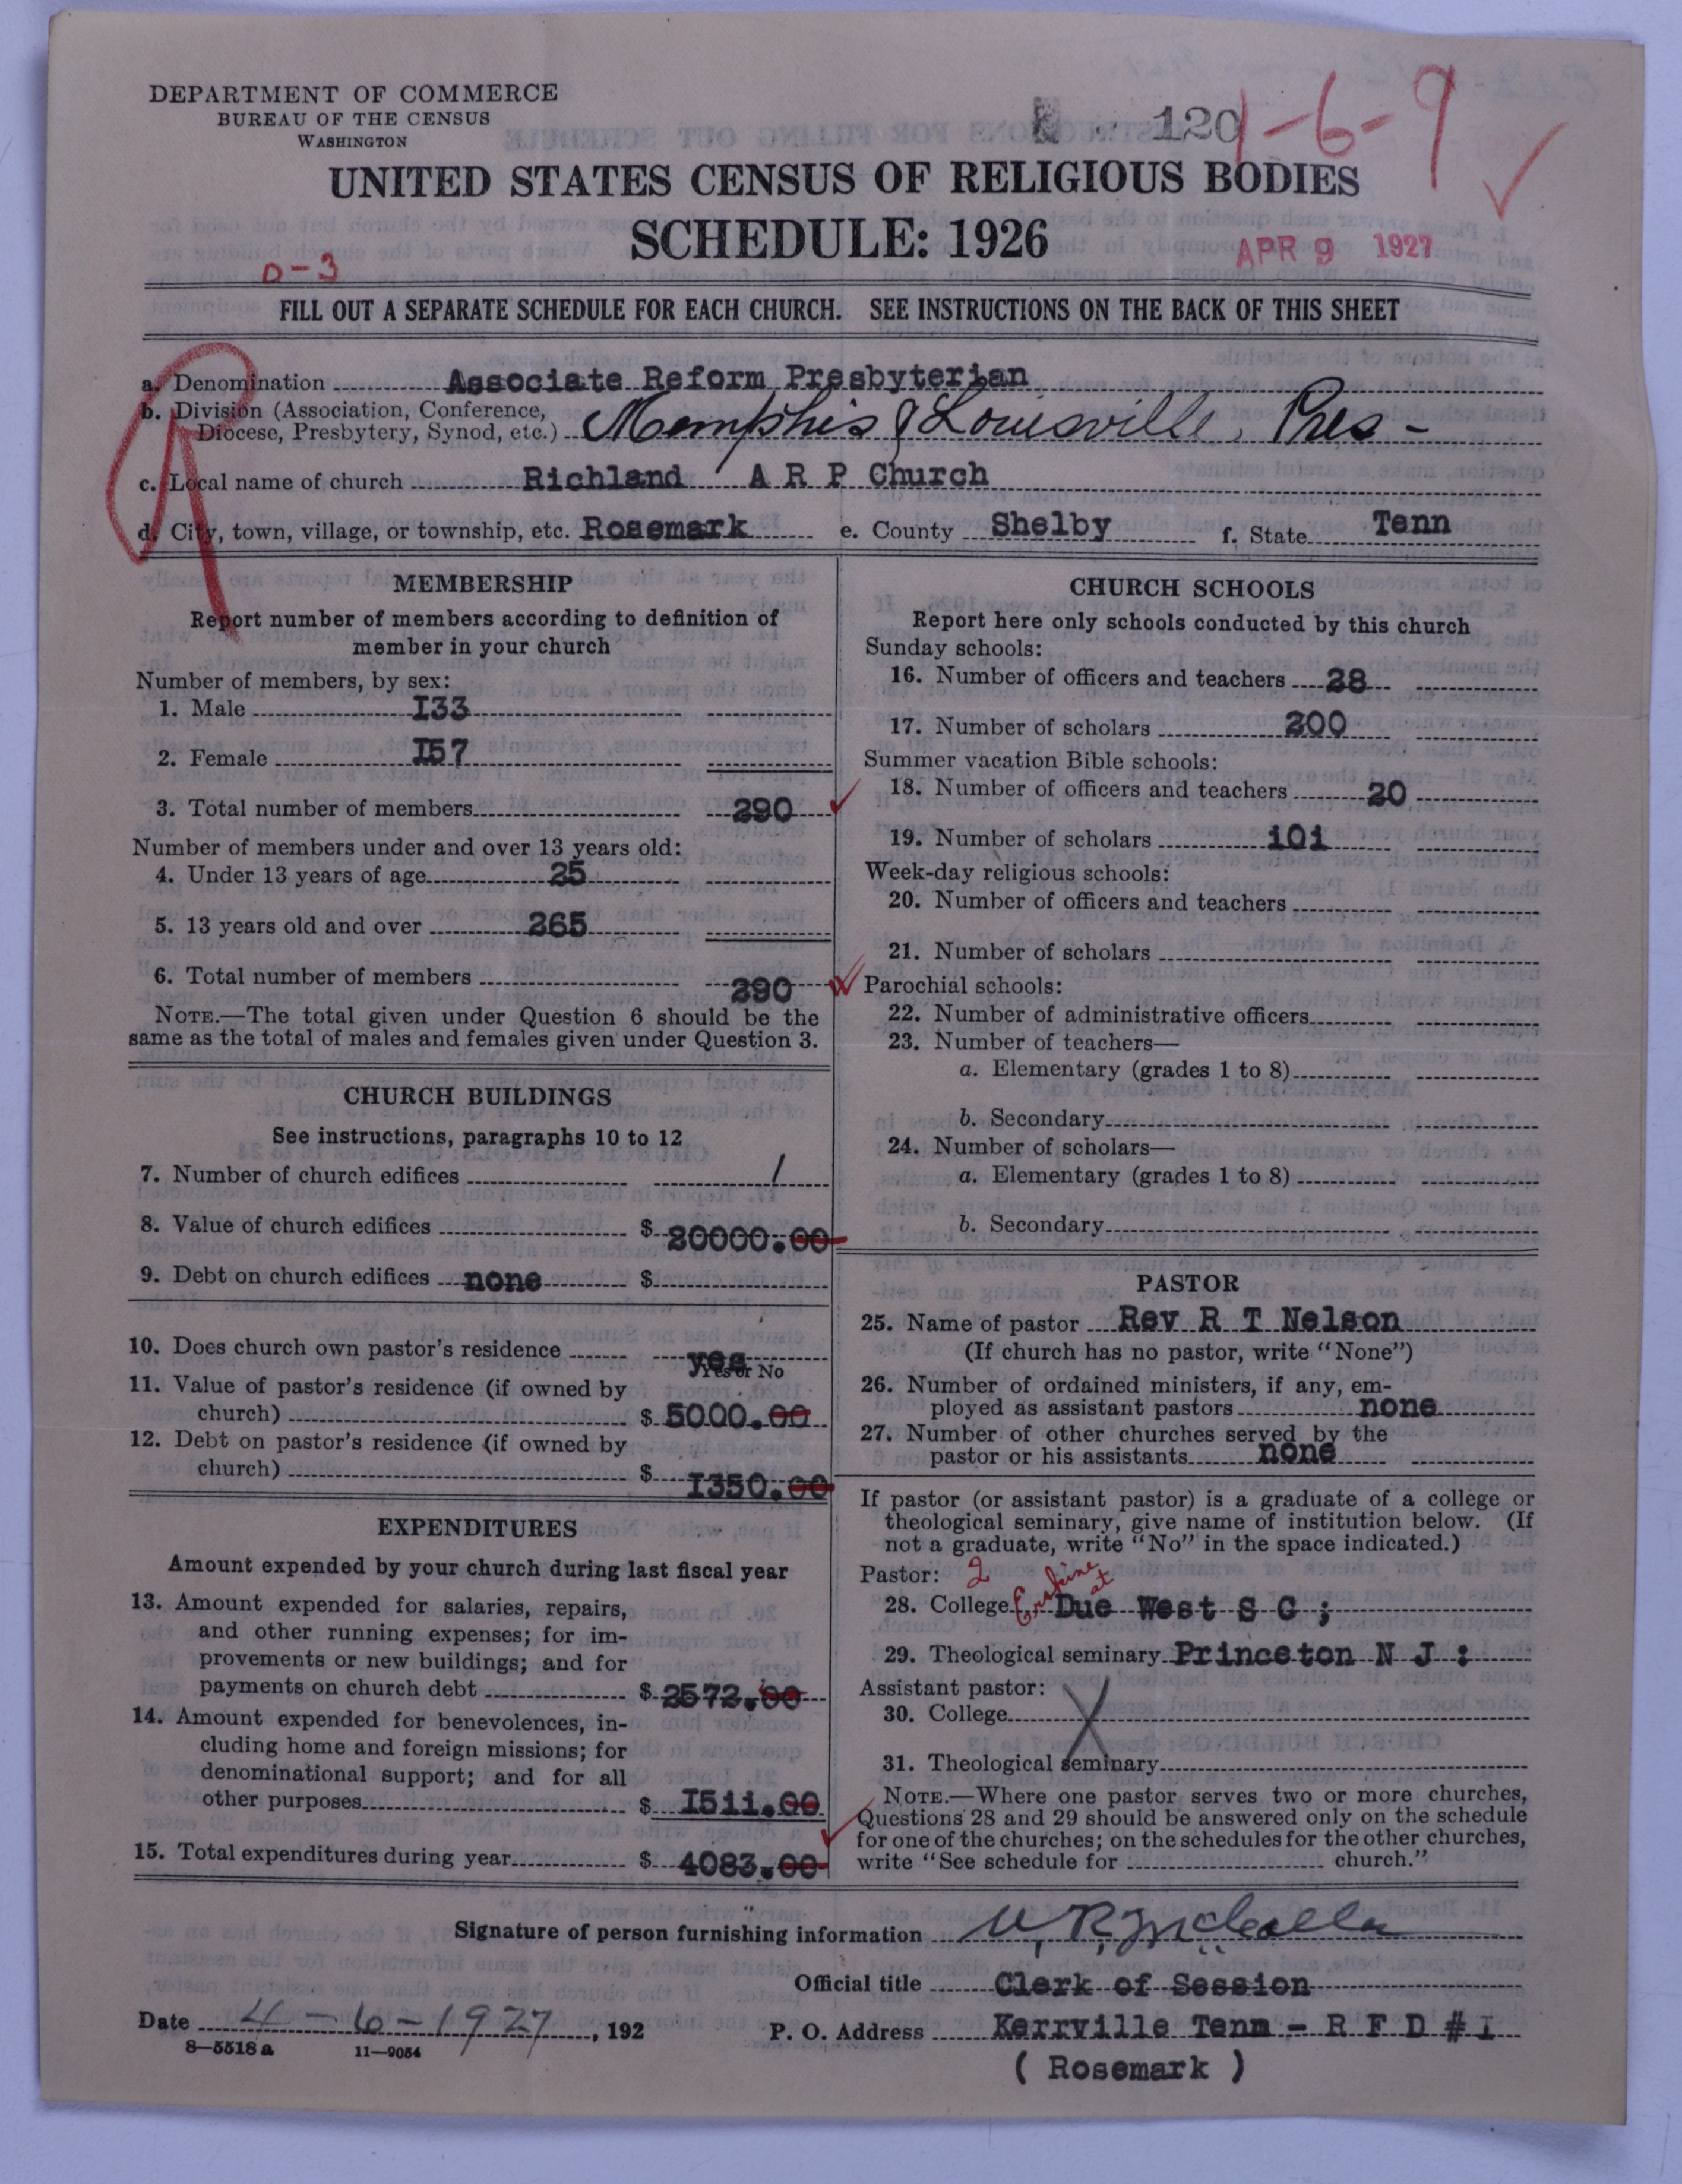 DEPARTMENT OF COMMERCE
BUREAU OF THE CENSUS
WASHINGTON
120
1-6-9
UNITED STATES CENSUS OF RELIGIOUS BODIES
SCHEDULE: 1926
APR 9 1927
0-3
FILL OUT A SEPARATE SCHEDULE FOR EACH CHURCH. SEE INSTRUCTIONS ON THE BACK OF THIS SHEET
a. Denomination Associate Reform Presbyterian
b. Division (Association, Conference, Diocese, Presbytery, Synod, etc.) Memphis & Louisville, Pres-
c. Local name of church Richland A R P Church
d. City, town, village, or township, etc. Rosemark e. County Shelby f. State Tenn
MEMBERSHIP
Report number of members according to definition of
member in your church
Number of members, by sex:
1. Male I33
2. Female I57
3. Total number of members 290
Number of members under and over 13 years old:
4. Under 13 years of age 25
5. 13 years old and over 265
6. Total number of members 290
NOTE.—The total given under Question 6 should be the
same as the total of males and females given under Question 3.
CHURCH BUILDINGS
See instructions, paragraphs 10 to 12
7. Number of church edifices 1
8. Value of church edifices $ 20000.00
9. Debt on church edifices none $
10. Does church own pastor's residence yes
Yes or No
11. Value of pastor's residence (if owned by
church) $ 5000.00
12. Debt on pastor's residence (if owned by
church) $ I350.00
EXPENDITURES
Amount expended by your church during last fiscal year
13. Amount expended for salaries, repairs,
and other running expenses; for im-
provements or new buildings; and for
payments on church debt $ 2572.00
14. Amount expended for benevolences, in-
cluding home and foreign missions; for
denominational support; and for all
other purposes $ I511.00
15. Total expenditures during year $ 4083.00
CHURCH SCHOOLS
Report here only schools conducted by this church
Sunday schools:
16. Number of officers and teachers 28
17. Number of scholars 200
Summer vacation Bible schools:
18. Number of officers and teachers 20
19. Number of scholars 101
Week-day religious schools:
20. Number of officers and teachers
21. Number of scholars
Parochial schools:
22. Number of administrative officers
23. Number of teachers—
a. Elementary (grades 1 to 8)
b. Secondary
24. Number of scholars—
a. Elementary (grades 1 to 8)
b. Secondary
PASTOR
25. Name of pastor Rev R T Nelson
(If church has no pastor, write "None")
26. Number of ordained ministers, if any, em-
ployed as assistant pastors none
27. Number of other churches served by the
pastor or his assistants none
If pastor (or assistant pastor) is a graduate of a college or
theological seminary, give name of institution below. (If
not a graduate, write "No" in the space indicated.)
Pastor: 2
28. College Erskine at Due West S C ;
29. Theological seminary Princeton N J :
Assistant pastor:
30. College
31. Theological seminary
NOTE.—Where one pastor serves two or more churches,
Questions 28 and 29 should be answered only on the schedule
for one of the churches; on the schedules for the other churches,
write "See schedule for church."
Signature of person furnishing information W. R. McCalla
Official title Clerk of Session
Date 4-6-1927, 192 P. O. Address Kerrville Tenn - R F D # I
8—5518 a 11—9054
( Rosemark )